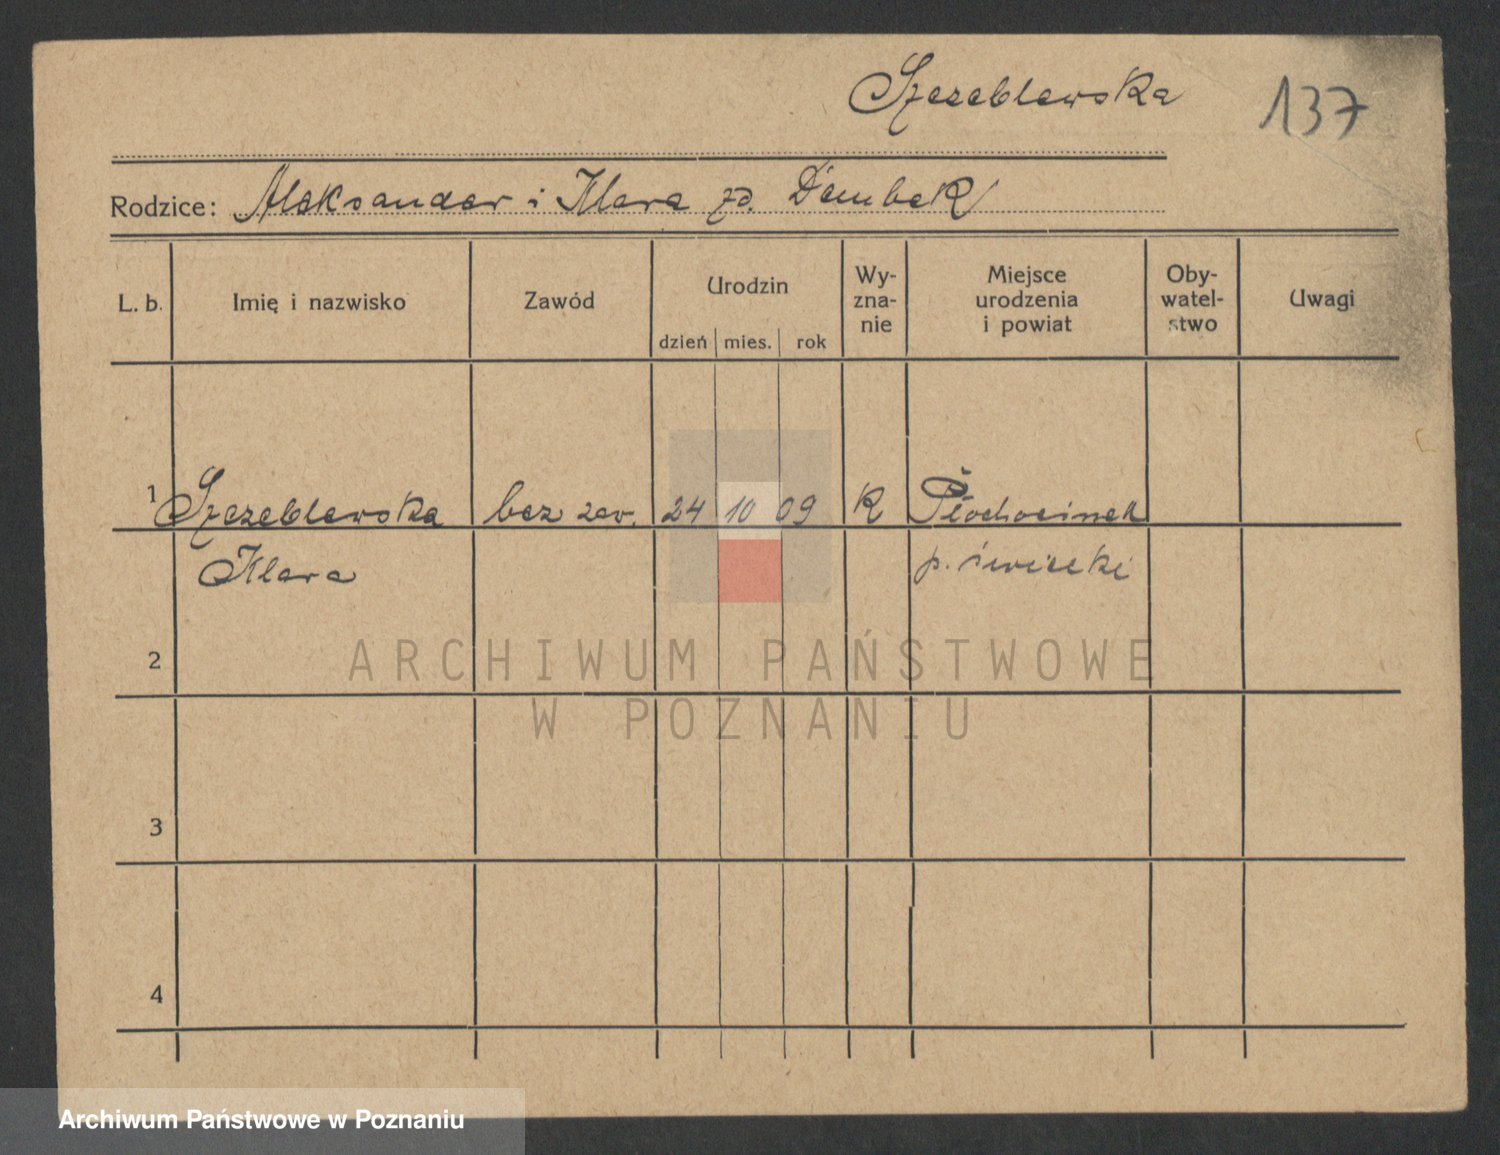 Szczeblewska
137
Rodzice: Aleksander i Klara zd. Dembek
L. b.
Imię i nazwisko
Zawód
Urodzin
dzień mies. rok
Wy-
zna-
nie
Miejsce
urodzenia
i powiat
Oby-
watel-
stwo
Uwagi
1 Szczeblewska bez zaw. 24 10 09 K Płochocinek
Klara p. świecki
2
ARCHIWUM PAŃSTWOWE
W POZNANIU
3
4
Archiwum Państwowe w Poznaniu